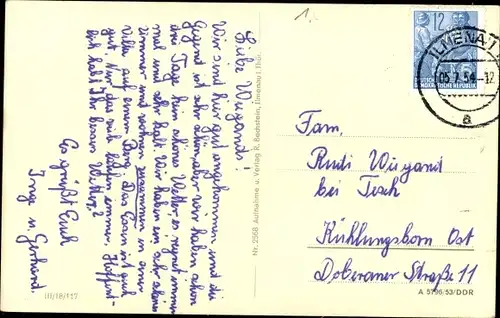 Liebe Wiegands!
Wir sind hier gut angekommen und die
Gegend ist sehr schön, aber wir haben schon
drei Tage kein schönes Wetter, es regnet immer
mal und ist kalt. Wir haben ein sehr schönes
Zimmer und wohnen zusammen in einer
Villa auf einem Berg. Das Essen ist auch
gut. Nur das viele laufen immer. Hoffent-
lich habt Ihr besser Wetter?
Es grüßt Euch
Inge u. Gerhard.
III/18/117
Nr. 2558 Aufnahme u. Verlag R. Bechstein, Ilmenau i. Thür.
1.
12
DEUTSCHE
REPUBLIK
ILMENAU
05.7.54-12
a
Fam.
Rudi Wiegand
bei Tesch
Kühlungsborn Ost
Doberaner Straße 11
A 5796/53/DDR